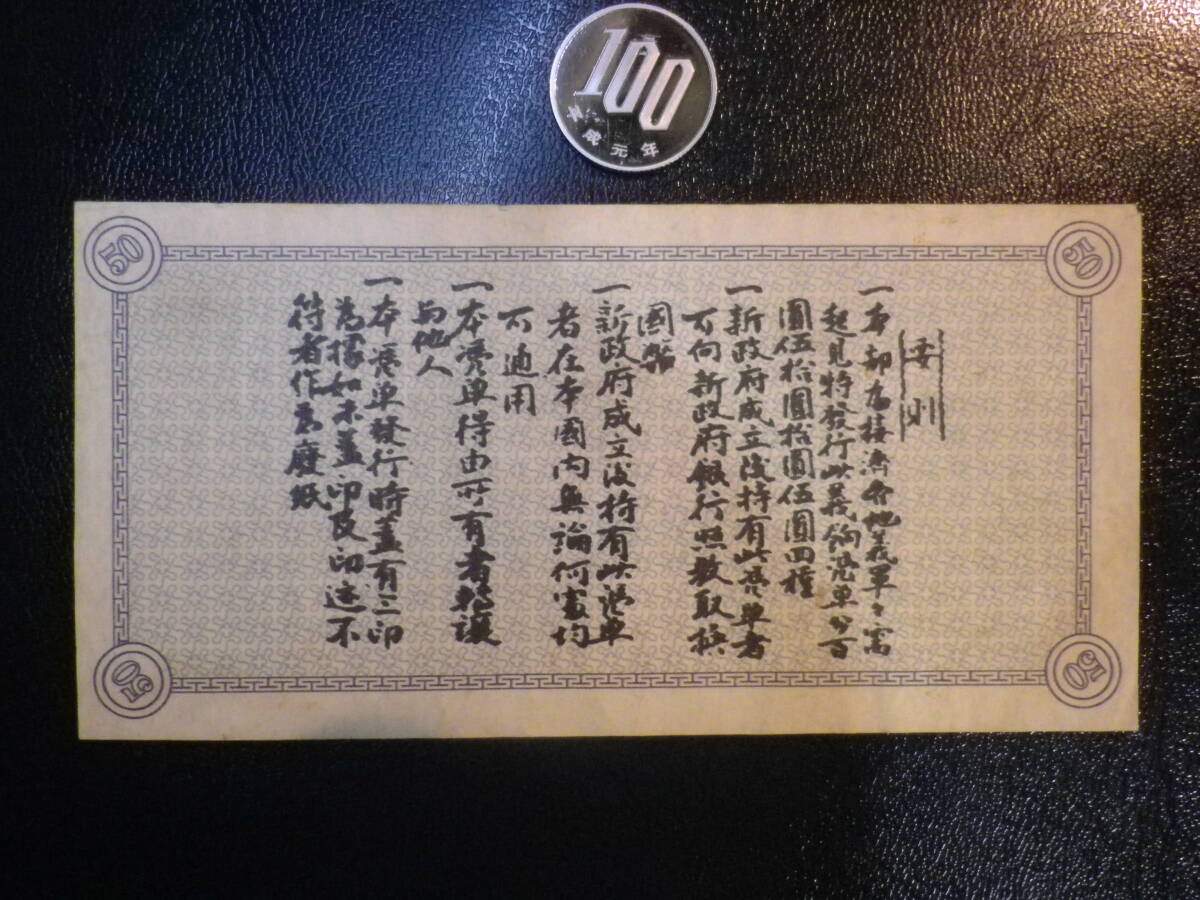 100
平成元年
50
50
要則
一本部為接濟各地義軍々需
起見特發行此義餉憑單分百
圓伍拾圓拾圓伍圓四種
一新政府成立後持有此憑單者
可向新政府銀行照數取換
國幣
一新政府成立後持有此憑單
者在本國內無論何處均
可通用
一本憑單得由所有者轉讓
与他人
一本憑單發行時蓋有三印
為據如未蓋印及印迹不
符者作為廢紙
50
50